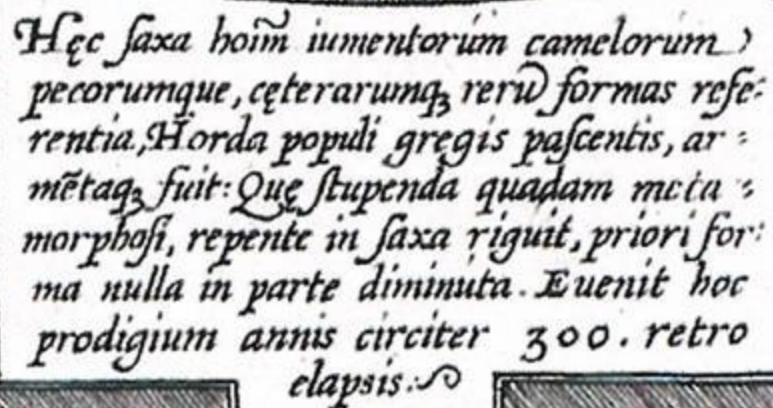 Hęc ſaxa hoim̃ iumentorúm camelorúm
pecorumque, cęterarumqꝫ rerũ formas refe-
rentia, Horda populi gregis paſcentis, ar-
mẽtaqꝫ fuit: Quę ſtupenda quadam meta-
morphoſi, repente in ſaxa riguit, priori for-
ma nulla in parte diminuta. Euenit hoc
prodigium annis circiter 300. retro
elapsis.